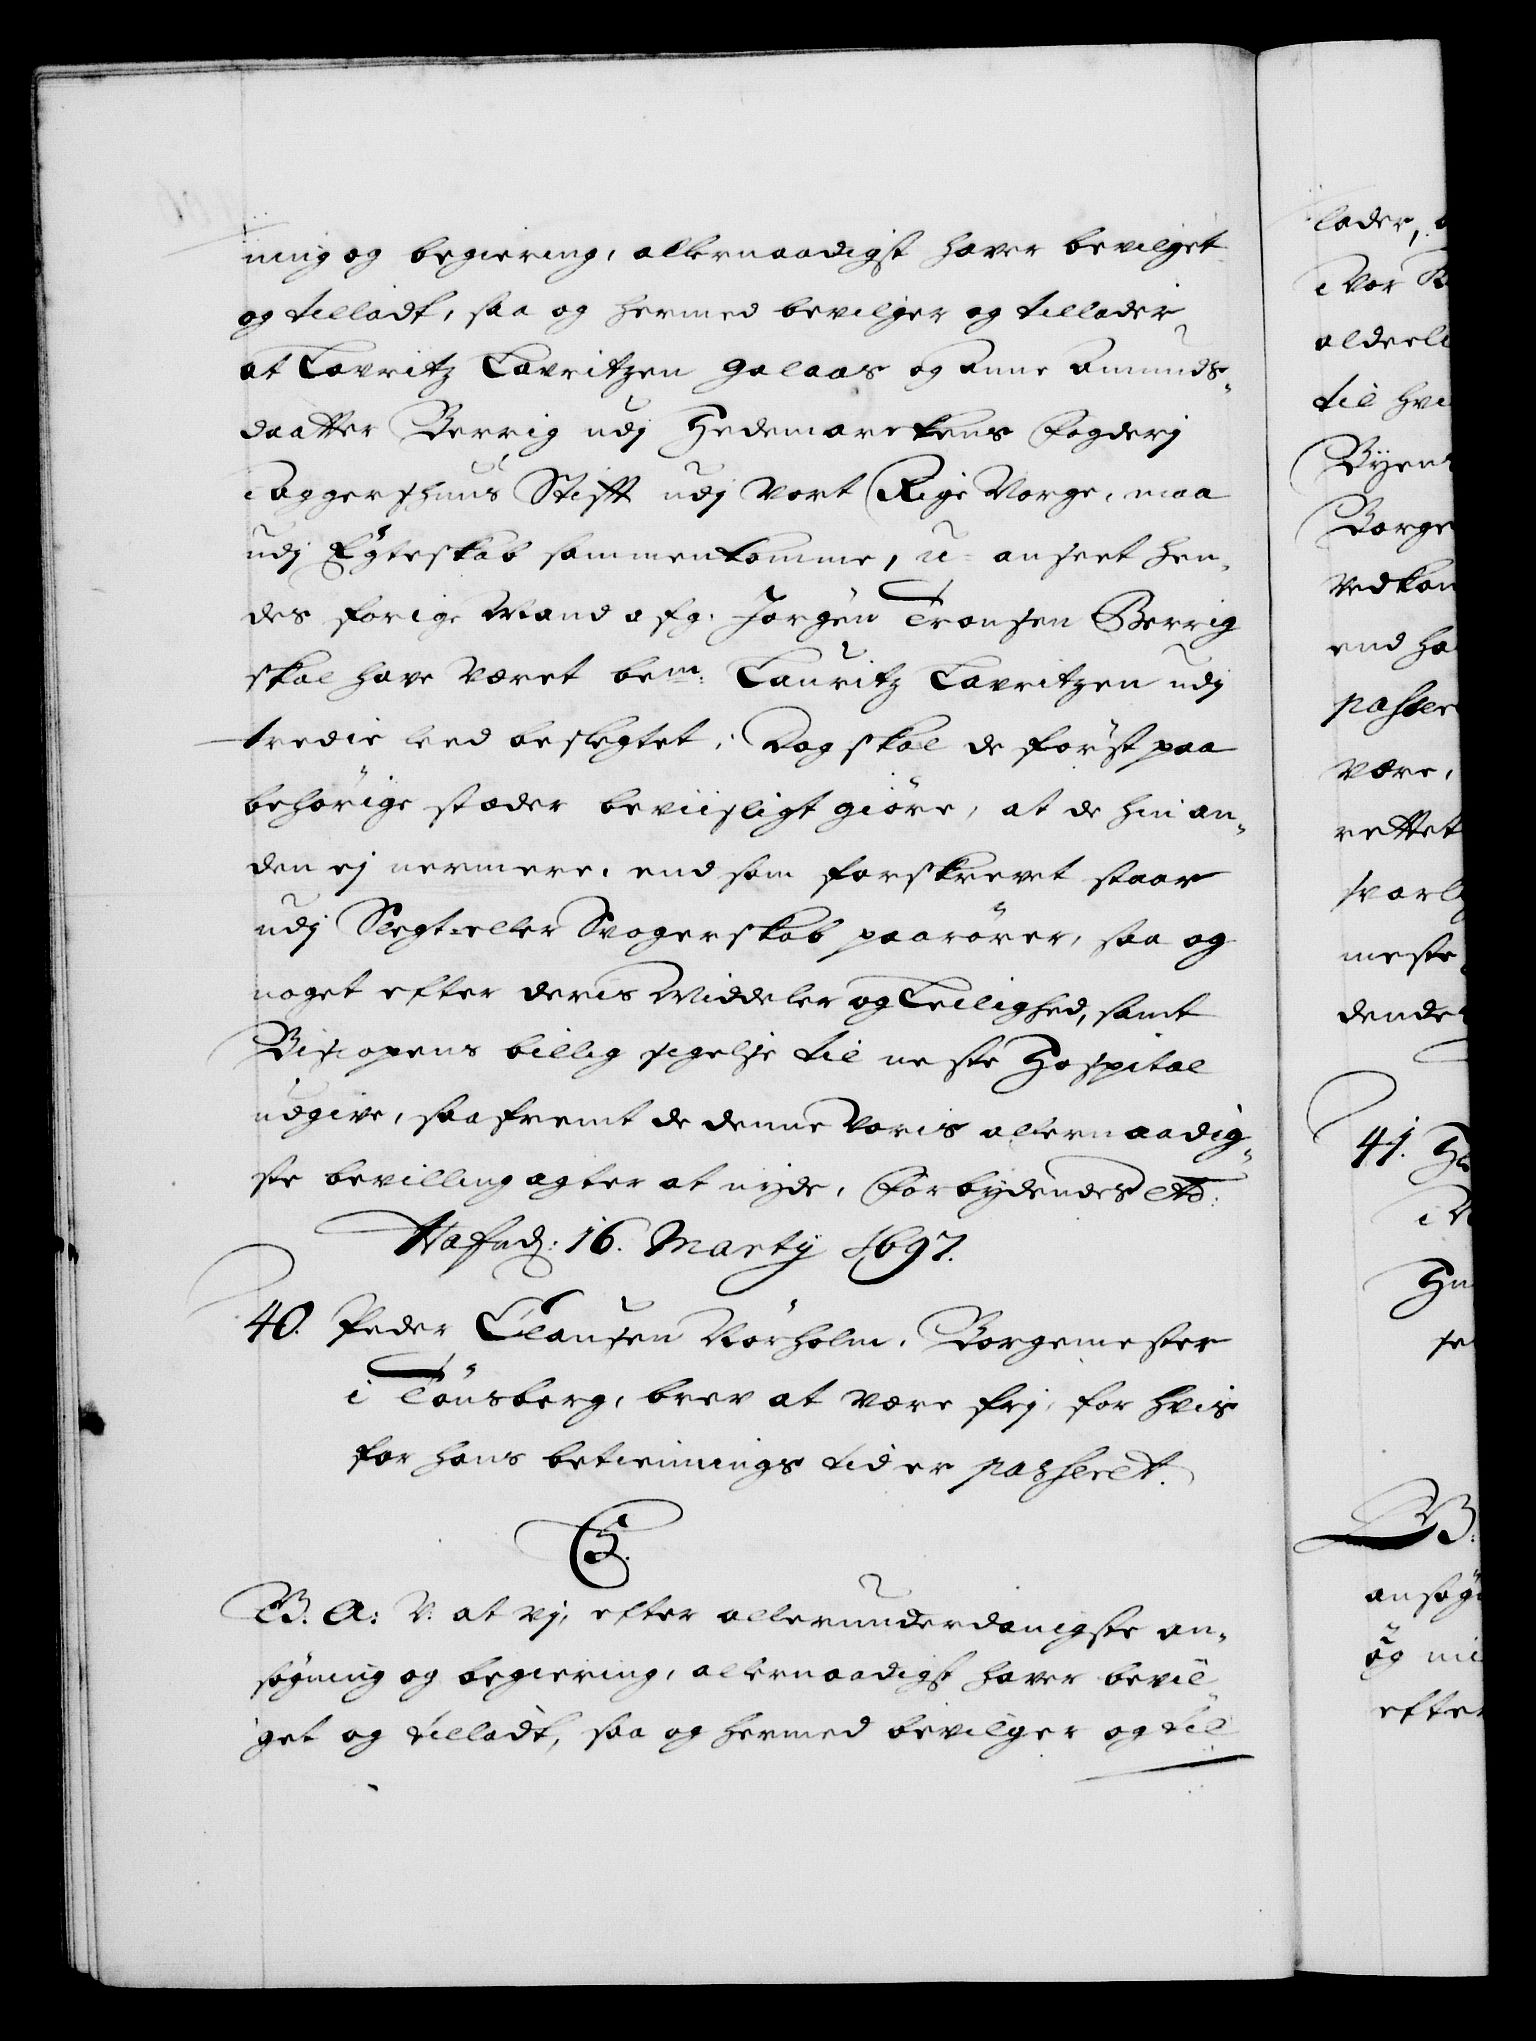 ning og begiering, allernaadigst haver bevilget
og tilladt, saa og hermed bevilger og tillader
at Lavritz Lavritzen Galaas og Anne Amunds„
daatter Berrig udj Hedemarckens fogderj
i Aggershuus Stifft udj Vort Rige Norge, maa
udj Egteskab sammenkomme, u-anseet hen„
des forige Mand afg: Jørgen Tronsen Berrig
skal have været bem: Lauritz Lavritzen udj
tredie leed beslegtet; Dog skal de først paa
behørige stæder beviisligt giøre, at de hin an„
den ej nermere, end som forskrevet staar
udj Slegt eller Svogerskab paarører, saa og
noget efter deris Middeler og Leilighed, samt
Biscopens billig sigelse til neste Hospital
udgive, saa fremt de denne Voris allernaadig„
ste bevilling agter at nyde, Forbydendes etc:
Hafnd: 16. Martij 1697.
40. Peder Clausen Nørholm, Borgemester
i Tønsberg, brev at være frj, for hvis
for hans betiennings tid er passeret.
C5.
G. A: V: at Vj, efter allerunderdanigste an„
søgning og begiering, allernaadigst haver bevil„
get og tilladt, saa og hermed bevilger og til
lader,
i Vor
til
Byens
Borge
Vedkom
end ha
passer
være,
rettet
svarl
meste
41.
ansøg
og
efter